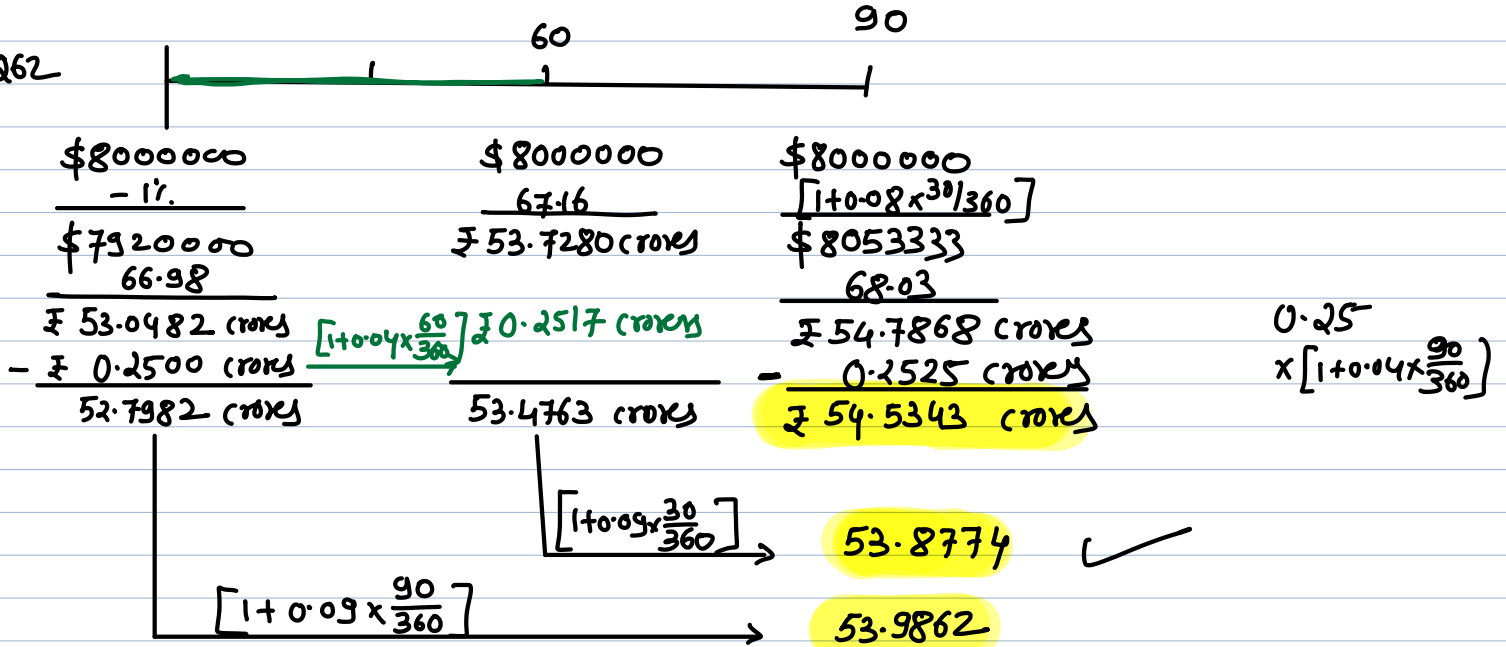 262
60
90
$8000000
- 1%.
$7920000
66.98
₹ 53.0482 crores
- ₹ 0.2500 crores
52.7982 crores
[1+0.04×60/360]
$8000000
67.16
₹ 53.7280 crores
₹ 0.2517 crores
53.4763 crores
$8000000
[1+0.08×30/360]
$8053333
68.03
₹ 54.7868 crores
- 0.2525 crores
₹ 54.5343 crores
0.25
×[1+0.04×90/360]
[1+0.09×30/360]
53.8774 ✓
[1+0.09×90/360]
53.9862